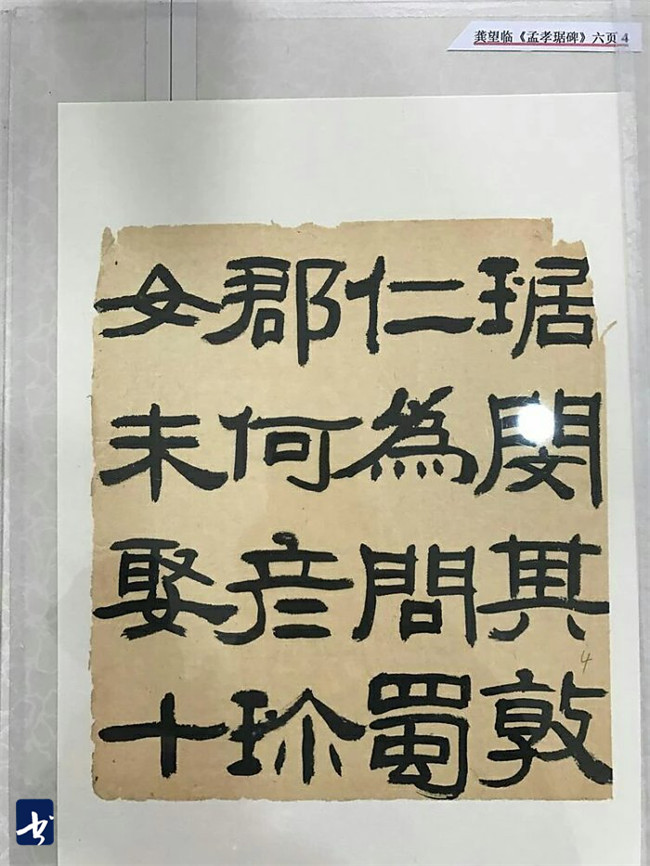 龚望临《孟孝琚碑》六页 4
琚閔其敦
仁為問蜀
郡何彦珎
女未娶十
4